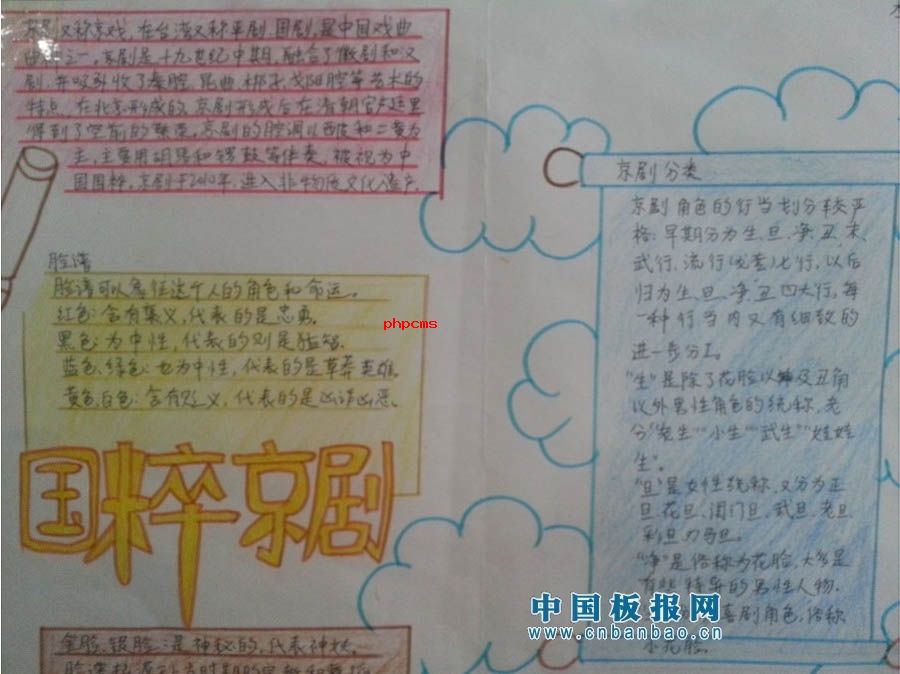 京剧又称京戏，在台湾又称平剧，国剧，是中国戏曲
曲种之一，京剧是十九世纪中期，融合了徽剧和汉
剧，并吸收了秦腔，昆曲、梆子、弋阳腔等艺术的
特点，在北京形成的，京剧形成后在清朝宫廷里
得到了空前的繁荣，京剧的腔调以西皮和二黄为
主，主要用胡琴和锣鼓等伴奏，被视为中
国国粹，京剧于2010年，进入非物质文化遗产。
脸谱
脸谱可以象征这个人的角色和命运。
红色：含有褒义，代表的是忠勇。
黑色：为中性，代表的则是猛智。
蓝色、绿色：也为中性，代表的是草莽英雄。
黄色、白色：含有贬义，代表的是凶诈凶恶。
phpcms
国粹京剧
金脸、银脸：是神秘的，代表神妖。
京剧分类
京剧角色的行当划分较严
格：早期分为生、旦、净、丑、末、
武行、流行(龙套)七行，以后
归为生、旦、净、丑四大行，每
一种行当内又有细致的
进一步分工。
"生"是除了花脸以及丑角
以外男性角色的统称，老
分"老生""小生""武生""娃娃
生"。
"旦"是女性统称，又分为正
旦、花旦、闺门旦、武旦、老旦
彩旦、刀马旦。
"净"是俗称为花脸，大多是
有些特异的男性人物。
喜剧角色，俗称
小花脸。
中国板报网
www.cnbanbao.cn